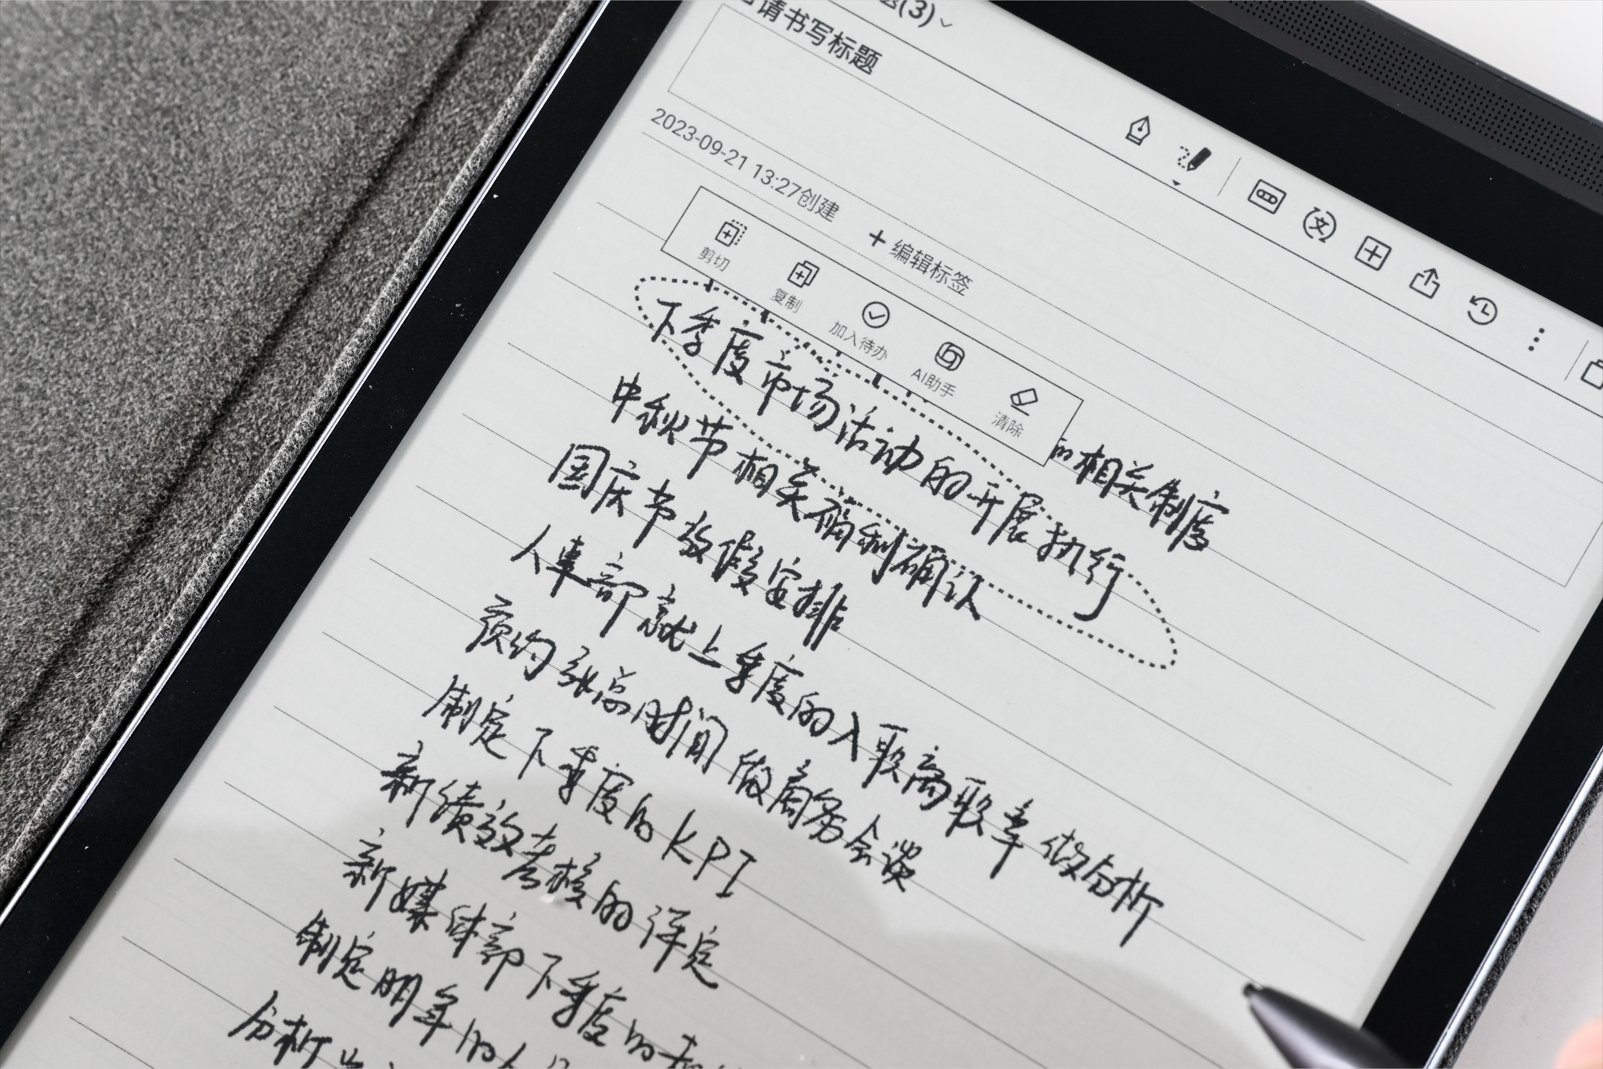 (3)
请书写标题
2023-09-21 13:27创建
+ 编辑标签
剪切 复制 加入待办 AI助手 清除
相关制度
下季度市场活动的开展执行
中秋节相关福利确认
国庆节放假安排
人事部就上季度的入职离职率做分析
预约张总时间做商务会谈
制定下季度的KPI
新绩效考核的评定
新媒体部下季度的
制定明年的
分析